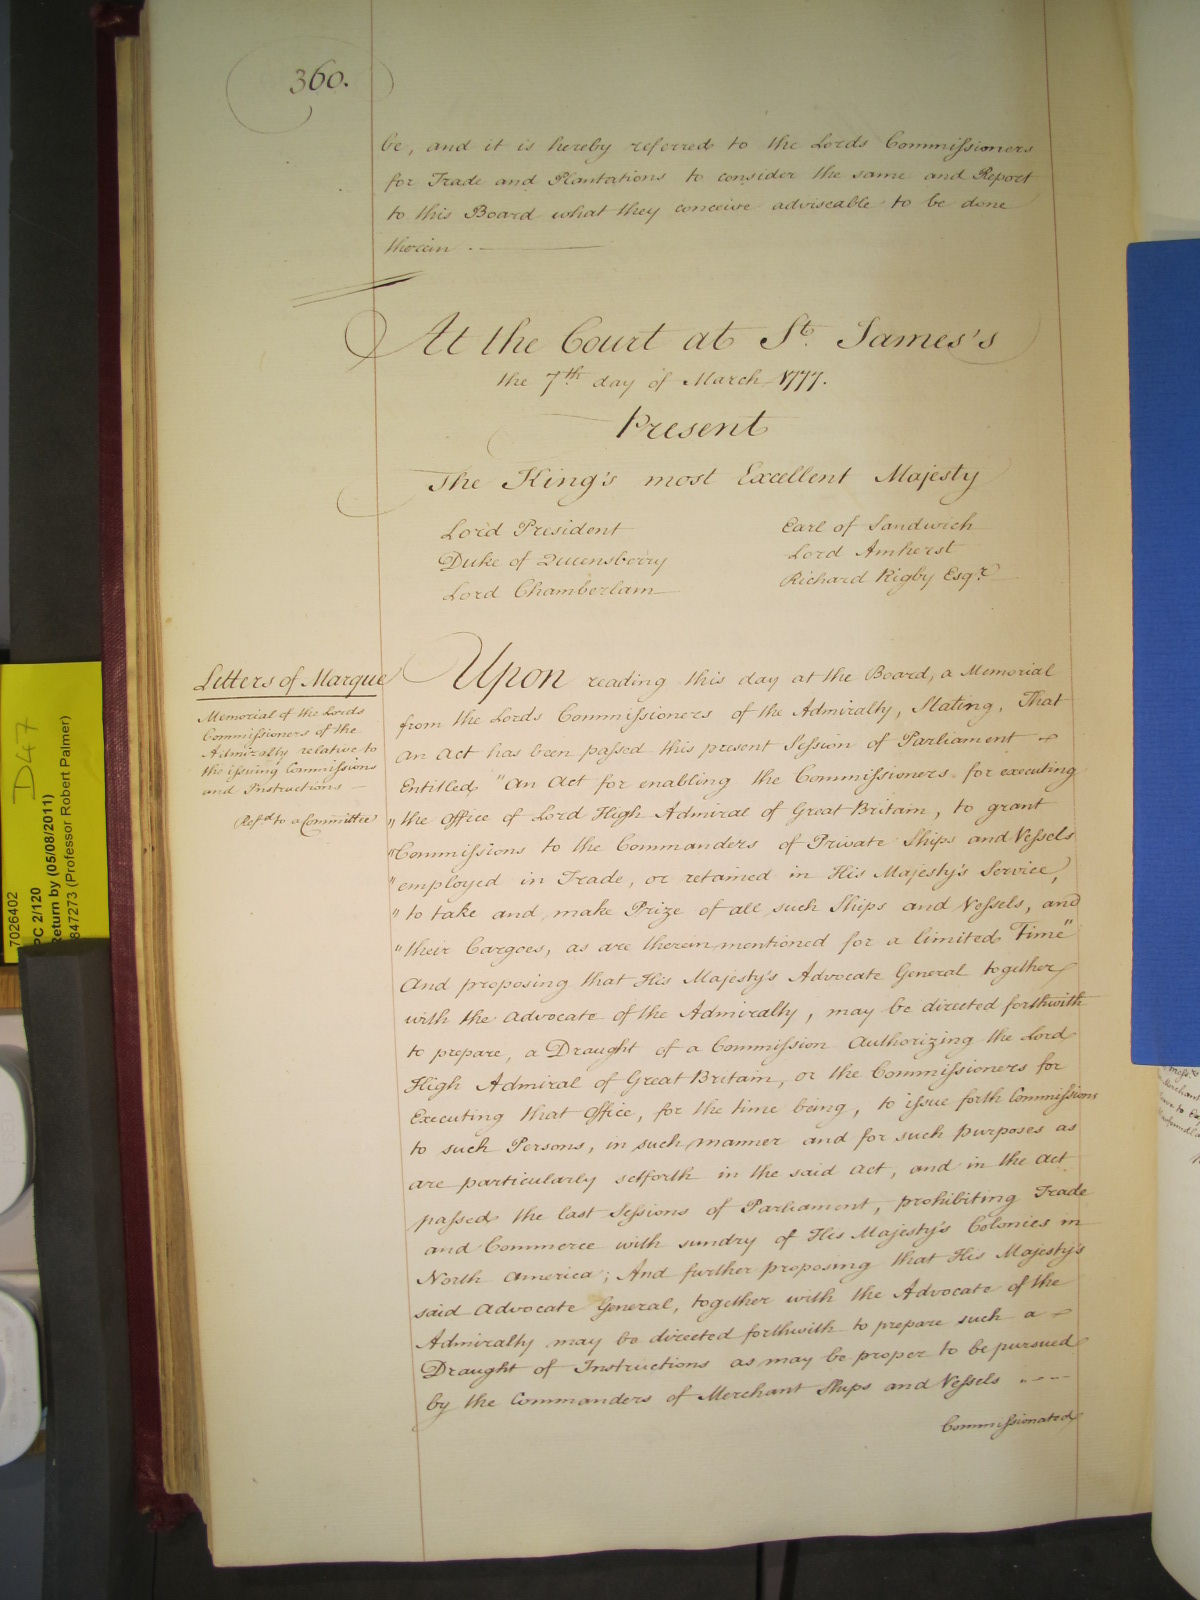 360.
be, and it is hereby referred to the Lords Commissioners
for Trade and Plantations to consider the same and Report
to this Board what they conceive adviseable to be done
therein.
At the Court at St. James's
the 7th day of March 1777.
Present
The King's most Excellent Majesty
Lord President
Duke of Queensberry
Lord Chamberlain
Earl of Sandwich
Lord Amherst
Richard Rigby Esqr.
Letters of Marque
Memorial of the Lords
Commissioners of the
Admiralty relative to
the issuing Commissions
and Instructions —
Refd. to a Committee
Upon reading this day at the Board, a Memorial
from the Lords Commissioners of the Admiralty, Stating, That
an Act has been passed this present Session of Parliament
Entitled "An Act for enabling the Commissioners for executing
"the Office of Lord High Admiral of Great Britain, to grant
"Commissions to the Commanders of Private Ships and Vessels
"employed in Trade, or retained in His Majesty's Service,
"to take and make Prize of all such Ships and Vessels, and
"their Cargoes, as are therein mentioned for a limited Time"
And proposing that His Majesty's Advocate General together
with the Advocate of the Admiralty, may be directed forthwith
to prepare, a Draught of a Commission Authorizing the Lord
High Admiral of Great Britain, or the Commissioners for
Executing that Office, for the time being, to issue forth Commissions
to such Persons, in such manner and for such purposes as
are particularly setforth in the said Act, and in the Act
passed the last Sessions of Parliament, prohibiting Trade
and Commerce with sundry of His Majesty's Colonies in
North America; And further proposing that His Majesty's
said Advocate General, together with the Advocate of the
Admiralty may be directed forthwith to prepare such a
Draught of Instructions as may be proper to be pursued
by the Commanders of Merchant Ships and Vessels ----
Commissionated
D47
7026402
PC 2/120
Return by (05/08/2011)
847273 (Professor Robert Palmer)